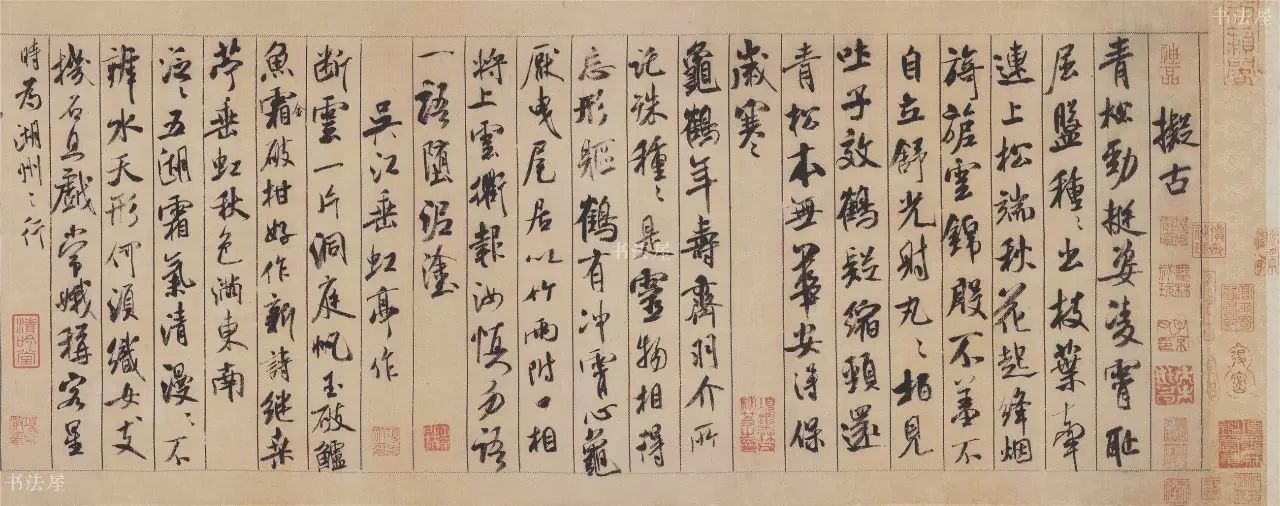 擬古
青松勁挺姿凌霄恥
屈盤種種出枝葉牽
連上松端秋花起絳烟
旖旎雲錦殷不羞不
自立舒光射丸丸柏見
吐子效鶴疑縮頸還
青松本無華安得保
歲寒
龜鶴年壽齊羽介所
託殊種種是靈物相得
忘形軀鶴有沖霄心龜
厭曳尾居以竹兩附口相
將上雲衢報汝慎勿語
一語墮泥塗
吳江垂虹亭作
断雲一片洞庭帆玉破鱸
魚霜金破柑好作新詩繼桑
苧垂虹秋色滿東南
泛泛五湖霜氣清漫漫不
辨水天形何須織女支
機石且戲常娥稱客星
時為湖州之行
神品
清吟堂
书法屋
书法屋
书法屋